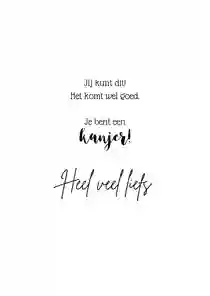 Jij kunt dit!
Het komt wel goed.
Je bent een
kanjer!
Heel veel liefs